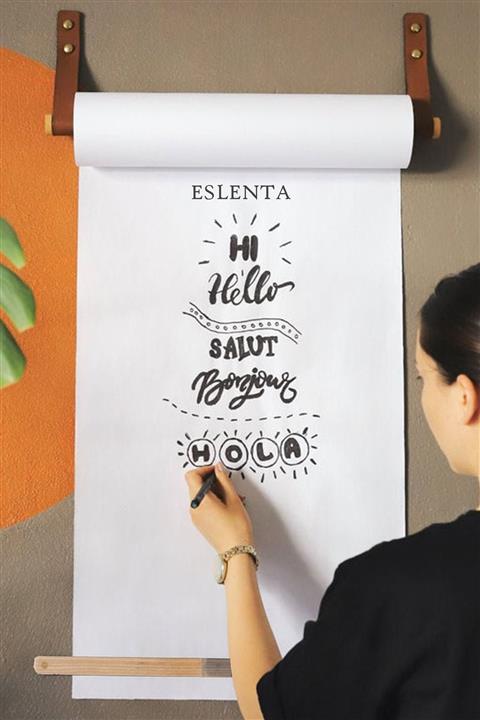 ESLENTA
HI
Hello
SALUT
Bonjour
HOLA